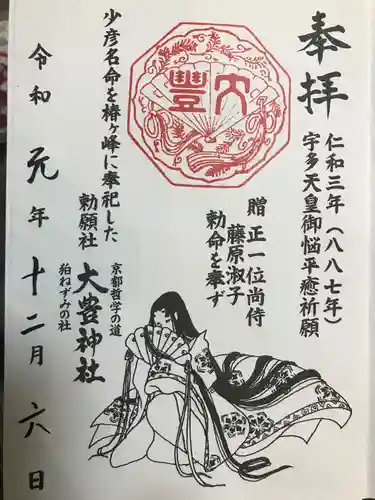 奉拝
仁和三年(八八七年)
宇多天皇御悩平癒祈願
贈 正一位尚侍
藤原淑子
勅命を奉ず
大豊
少彦名命を椿ヶ峰に奉祀した
勅願社
京都哲学の道
大豊神社
狛ねずみの社
令和元年十二月六日